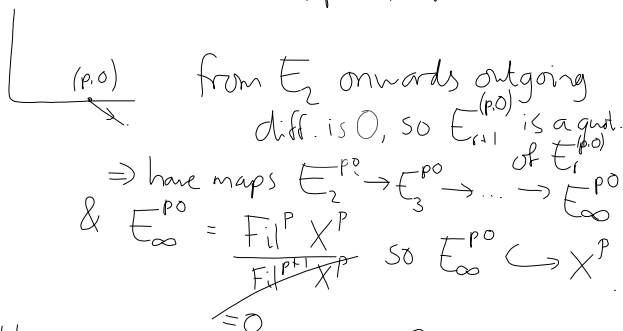 (p,0) from E_2 onwards outgoing
diff. is 0, so E_{r+1}^{(p,0)} is a quot.
of E_r^{(p,0)}
⇒ have maps E_2^{p0} → E_3^{p0} → ... → E_∞^{p0}
& E_∞^{p0} = Fil^p X^p / Fil^{p+1} X^p so E_∞^{p0} ↪ X^p.
=0